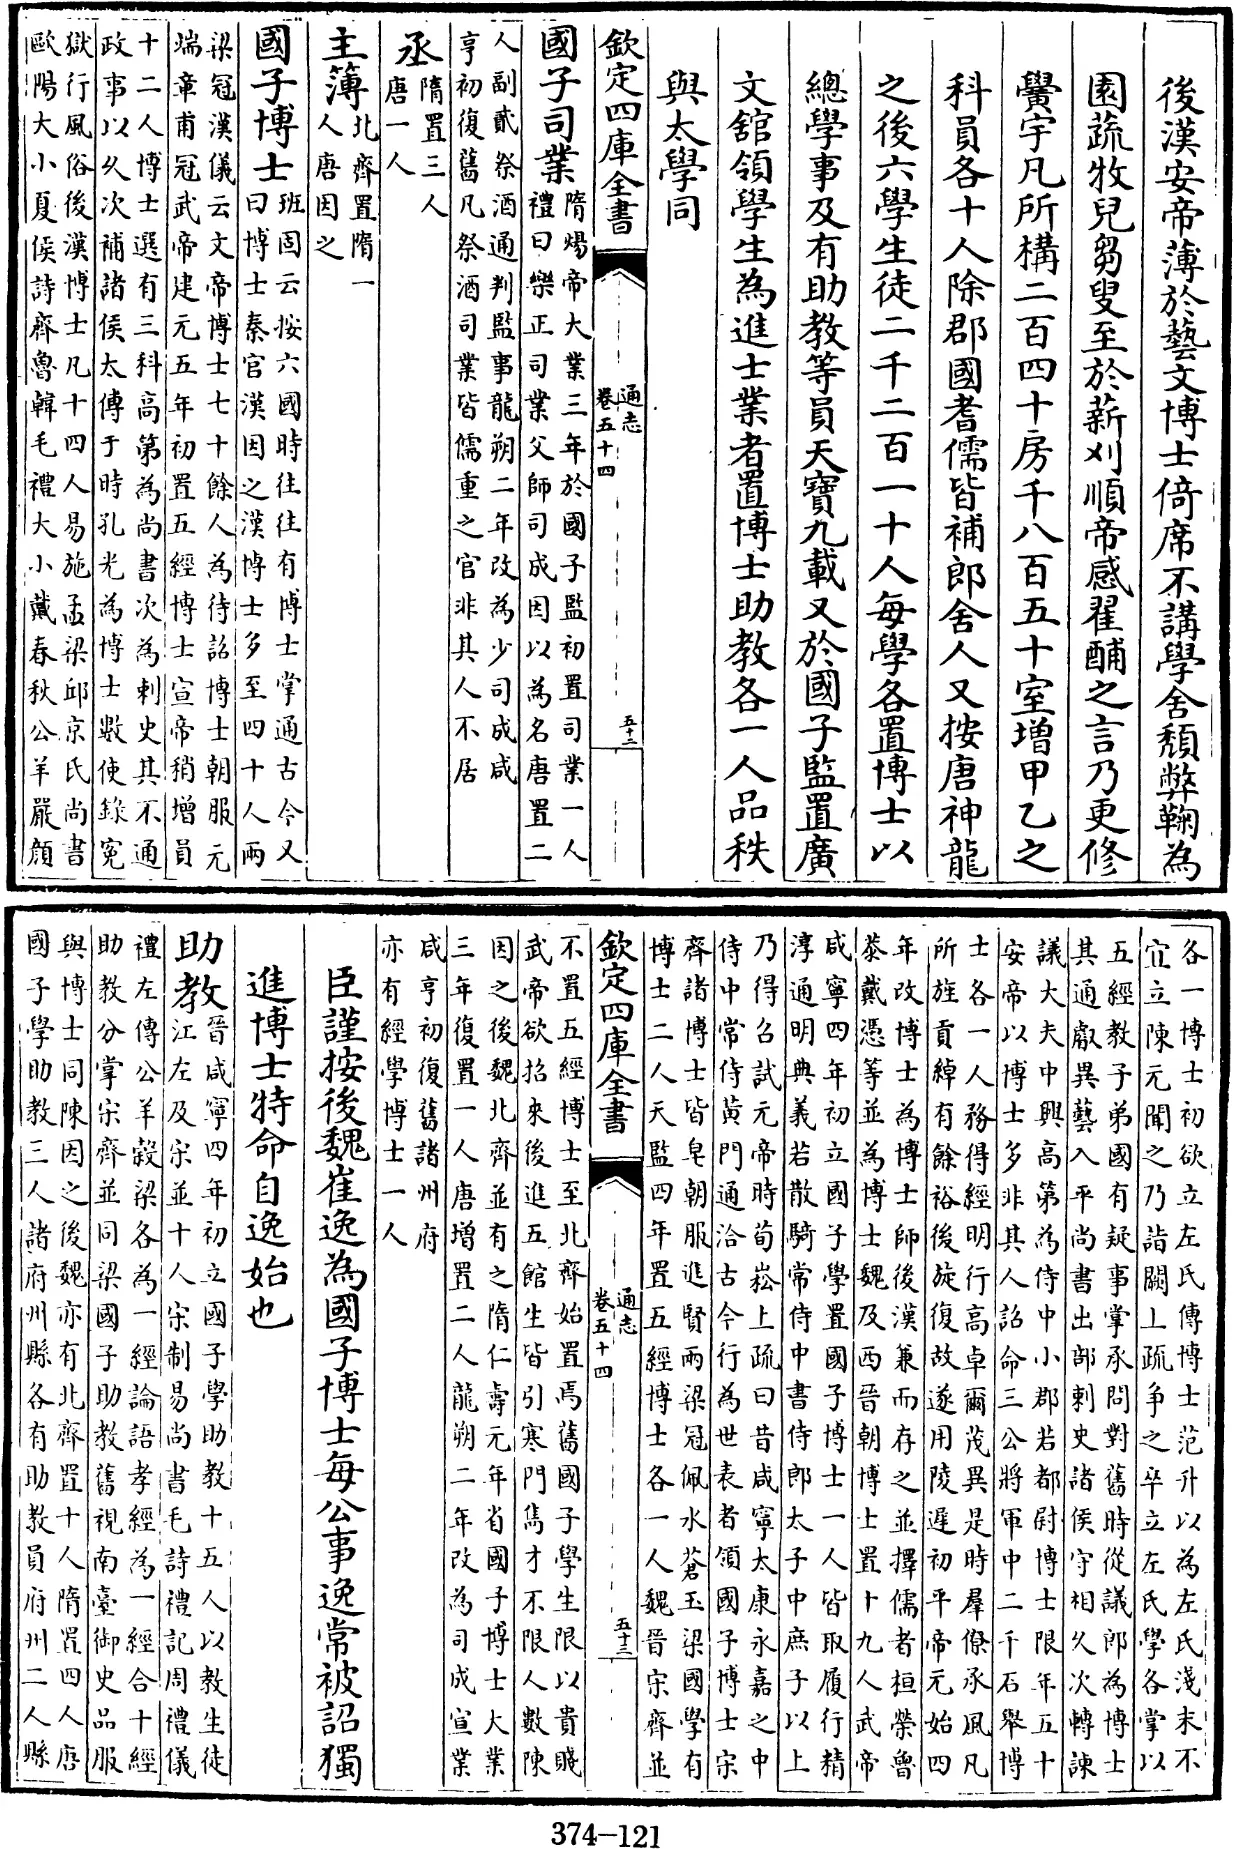 後漢安帝薄於藝文博士倚席不講學舍頹弊鞠為
園蔬牧兒芻叟至於薪刈順帝感翟酺之言乃更修
黌宇凡所構二百四十房千八百五十室增甲乙之
科員各十人除郡國耆儒皆補郎舍人又按唐神龍
之後六學生徒二千二百一十人每學各置博士以
總學事及有助教等員天寶九載又於國子監置廣
文館領學生為進士業者置博士助教各一人品秩
與太學同
欽定四庫全書
通志
卷五十四
五十二
國子司業
隋煬帝大業三年於國子監初置司業一人
禮曰樂正司業父師司成因以為名唐置二
人副貳祭酒通判監事龍朔二年改為少司成咸
亨初復舊凡祭酒司業皆儒重之官非其人不居
丞
隋置三人
唐一人
主簿
北齊置隋一
人唐因之
國子博士
班固云按六國時往往有博士掌通古今又
曰博士秦官漢因之漢博士多至四十人兩
梁冠漢儀云文帝博士七十餘人為待詔博士朝服元
端章甫冠武帝建元五年初置五經博士宣帝稍增員
十二人博士選有三科高第為尚書次為刺史其不通
政事以久次補諸侯太傅于時孔光為博士數使錄冤
獄行風俗後漢博士凡十四人易施孟梁邱京氏尚書
歐陽大小夏侯詩齊魯韓毛禮大小戴春秋公羊嚴顏
各一博士初欲立左氏傳博士范升以為左氏淺末不
宜立陳元聞之乃詣闕上疏爭之卒立左氏學各掌以
五經教子弟國有疑事掌承問對舊時從議郎為博士
其通叡異藝入平尚書出部刺史諸侯守相久次轉諫
議大夫中興高第為侍中小郡若都尉博士限年五十
安帝以博士多非其人詔命三公將軍中二千石舉博
士各一人務得經明行高卓爾茂異是時羣僚承風凡
所旌貢綽有餘裕後旋復故遂用陵遲初平帝元始四
年改博士為博士師後漢兼而存之並擇儒者桓榮魯
恭戴憑等並為博士魏及西晉朝博士置十九人武帝
咸寧四年初立國子學置國子博士一人皆取履行精
淳通明典義若散騎常侍中書侍郎太子中庶子以上
乃得召試元帝時荀崧上疏曰昔咸寧太康永嘉之中
侍中常侍黃門通洽古今行為世表者領國子博士宋
齊諸博士皆皂朝服進賢兩梁冠佩水蒼玉梁國學有
博士二人天監四年置五經博士各一人魏晉宋齊並
欽定四庫全書
通志
卷五十四
五十三
不置五經博士至北齊始置焉舊國子學生限以貴賤
武帝欲招來後進五館生皆引寒門雋才不限人數陳
因之後魏北齊並有之隋仁壽元年省國子博士大業
三年復置一人唐增置二人龍朔二年改為司成宣業
咸亨初復舊諸州府
亦有經學博士一人
臣謹按後魏崔逸為國子博士每公事逸常被詔獨
進博士特命自逸始也
助教
晉咸寧四年初立國子學助教十五人以教生徒
江左及宋並十人宋制易尚書毛詩禮記周禮儀
禮左傳公羊穀梁各為一經論語孝經為一經合十經
助教分掌宋齊並同梁國子助教舊視南臺御史品服
與博士同陳因之後魏亦有北齊置十人隋置四人唐
國子學助教三人諸府州縣各有助教員府州二人縣
374—121